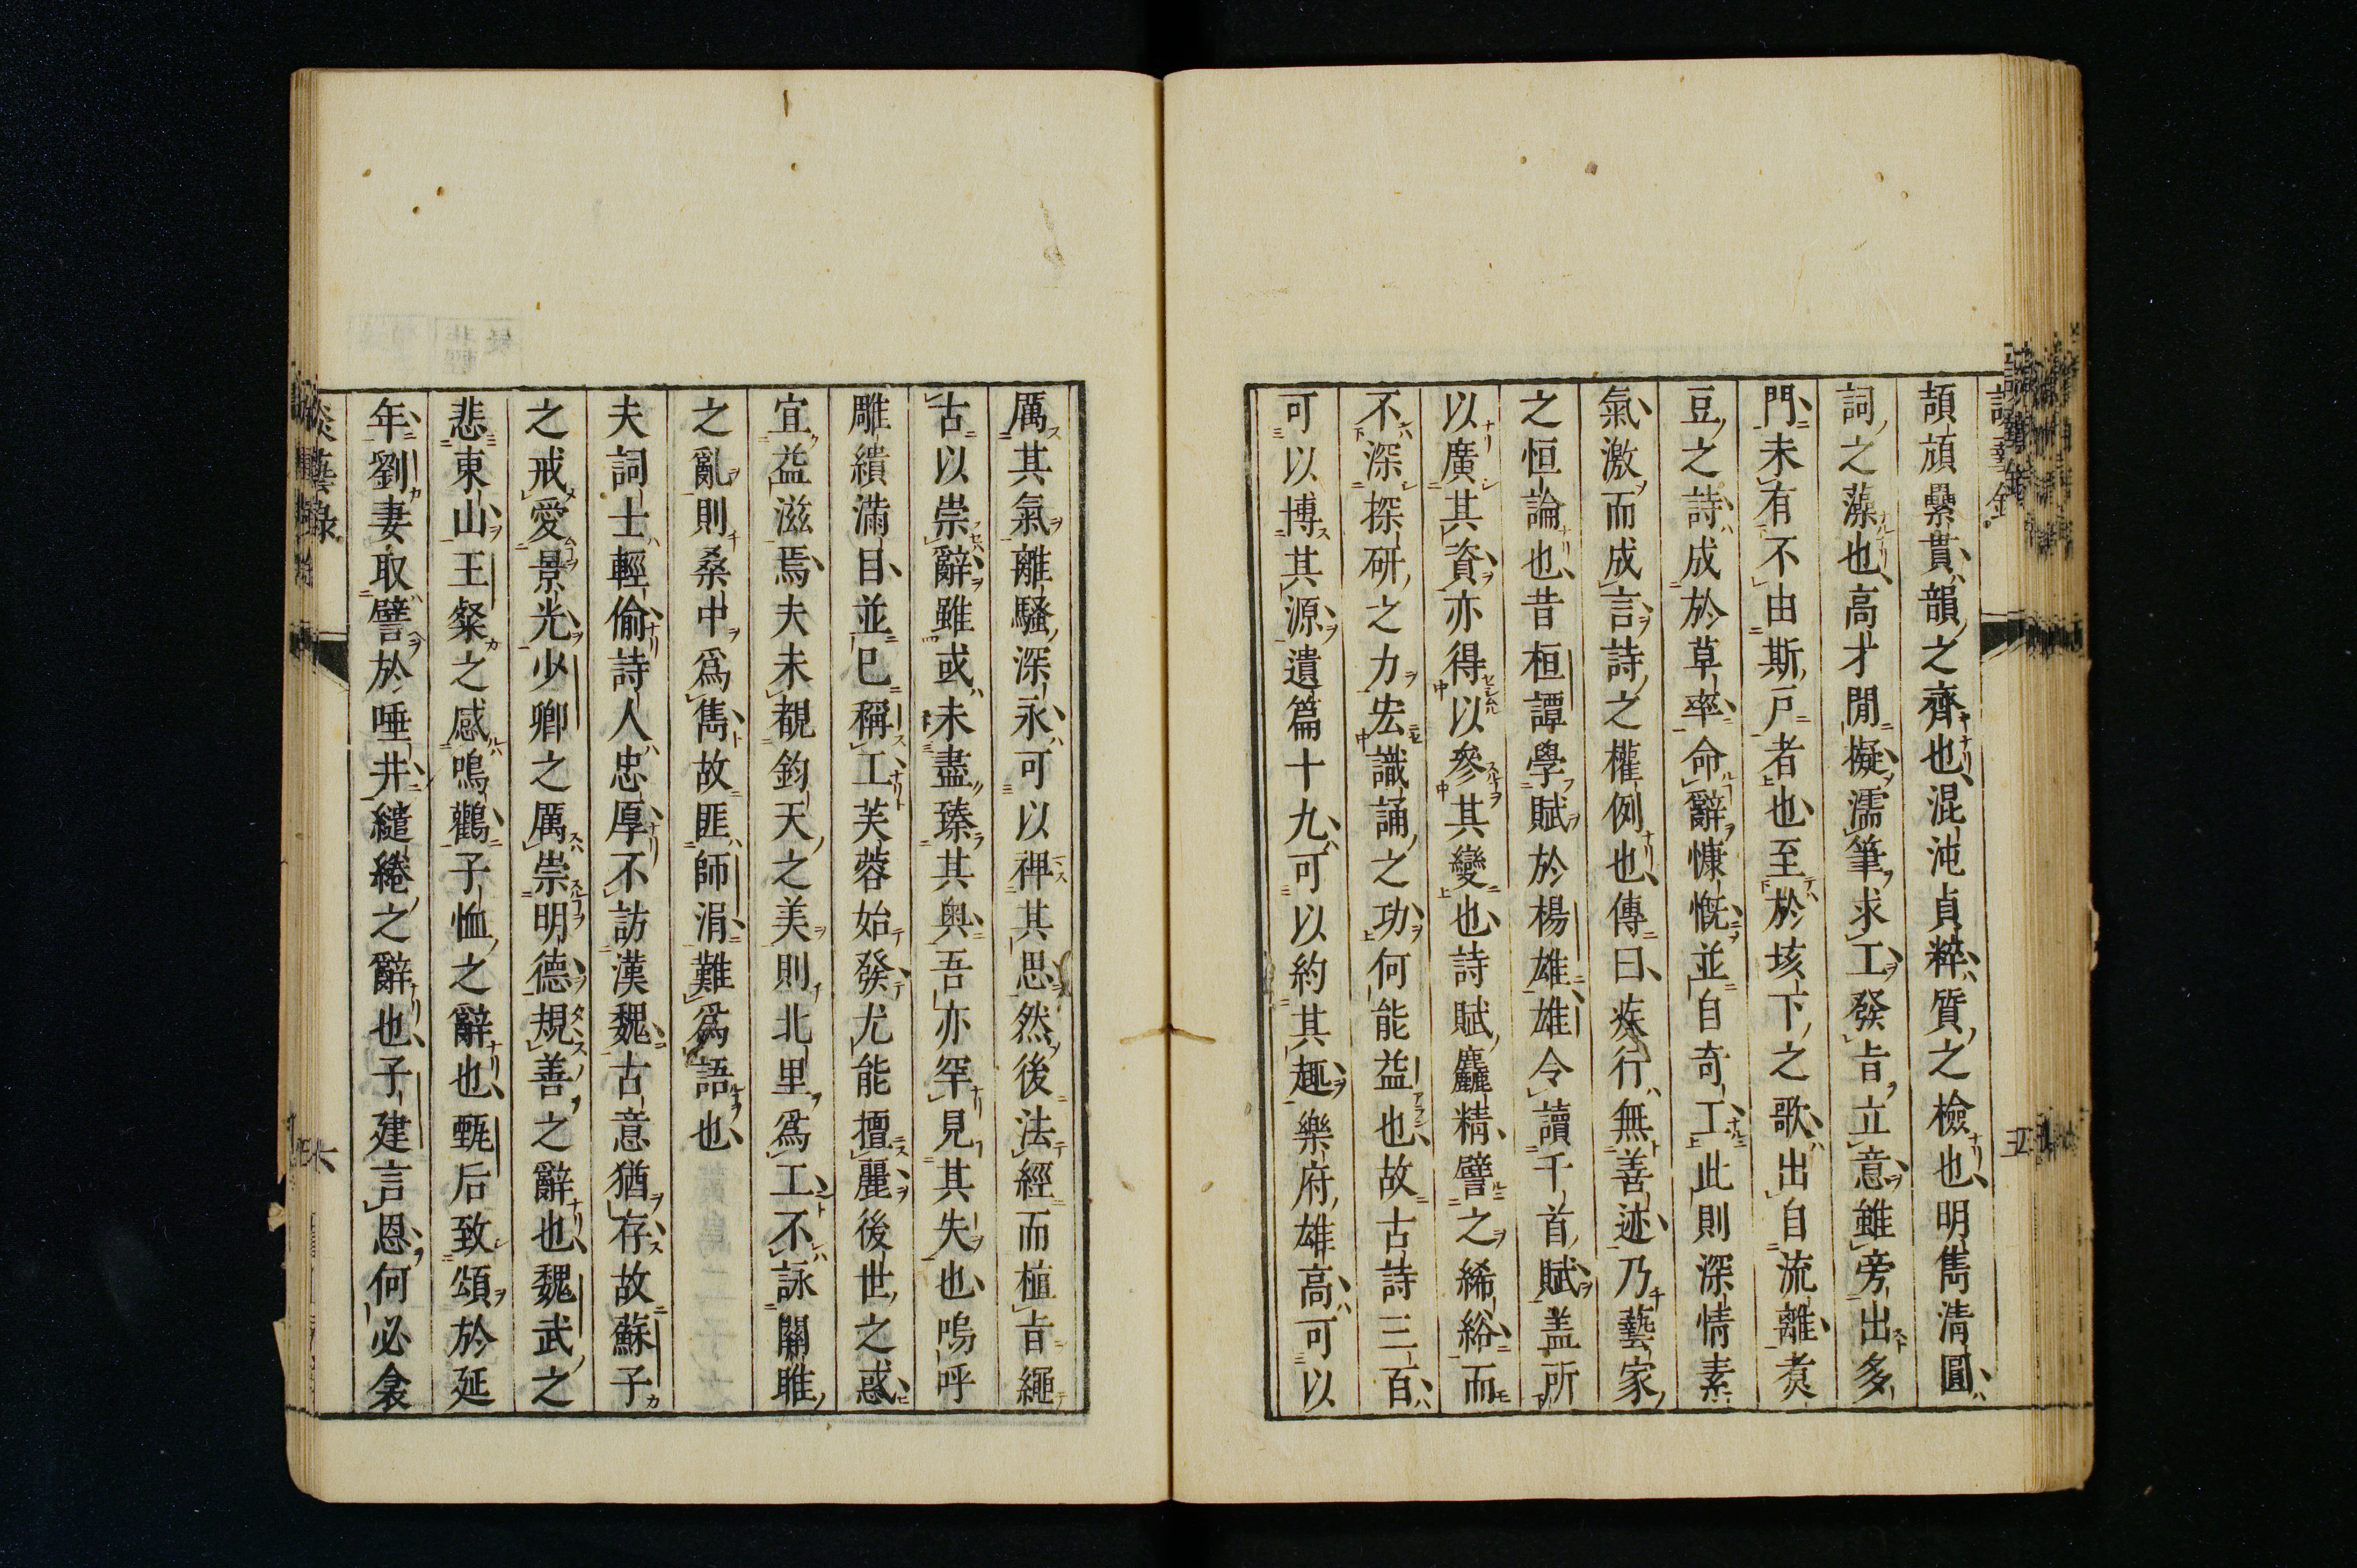 談藝錄
頡頏纍貫韻之齊也混沌貞粹質之檢也明雋清圓
詞之藻也高才閒擬濡筆求工發㫖立意雖旁出多
門未有不由斯戶者也至於垓下之歌出自流離煑
豆之詩成於草率命辭慷慨並自奇工此則深情素
氣激而成言詩之權例也傳曰疾行無善迹乃藝家
之恒論也昔桓譚學賦於楊雄雄令讀千首賦盖所
以廣其資亦得以參其變也詩賦麤精譬之絺綌而
不深探研之力宏識誦之功何能益也故古詩三百
可以博其源遺篇十九可以約其趣樂府雄高可以
五
厲其氣離騷深永可以裨其思然後法經而植㫖繩
古以崇辭雖或未盡臻其奥吾亦罕見其失也嗚呼
雕繢滿目並已稱工芙蓉始發尤能擅麗後世之惑
宜益滋焉夫未覩鈞天之美則北里爲工不詠關雎
之亂則桑中爲雋故匪師涓難爲語也
夫詞士輕偷詩人忠厚不訪漢魏古意猶存故蘇子
之戒愛景光少卿之厲崇明德規善之辭也魏武之
悲東山王粲之感鳴鸛子恤之辭也甄后致頌於延
年劉妻取譬於唾井繾綣之辭也子建言恩何必衾
談藝錄
六